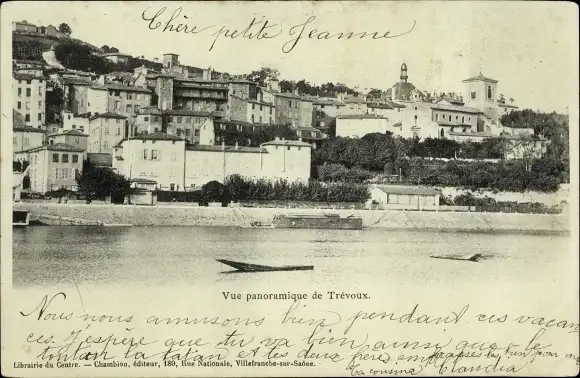 Chère petite Jeanne
Vue panoramique de Trévoux.
Nous nous amusons bien pendant ces vacan
ces. J'espère que tu va bien ainsi que le
tonton ta tatan et tes deux frère embrasse les bien pour moi
Ta cousine Claudia
Librairie du Centre. — Chambion, éditeur, 189, Rue Nationale, Villefranche-sur-Saône.